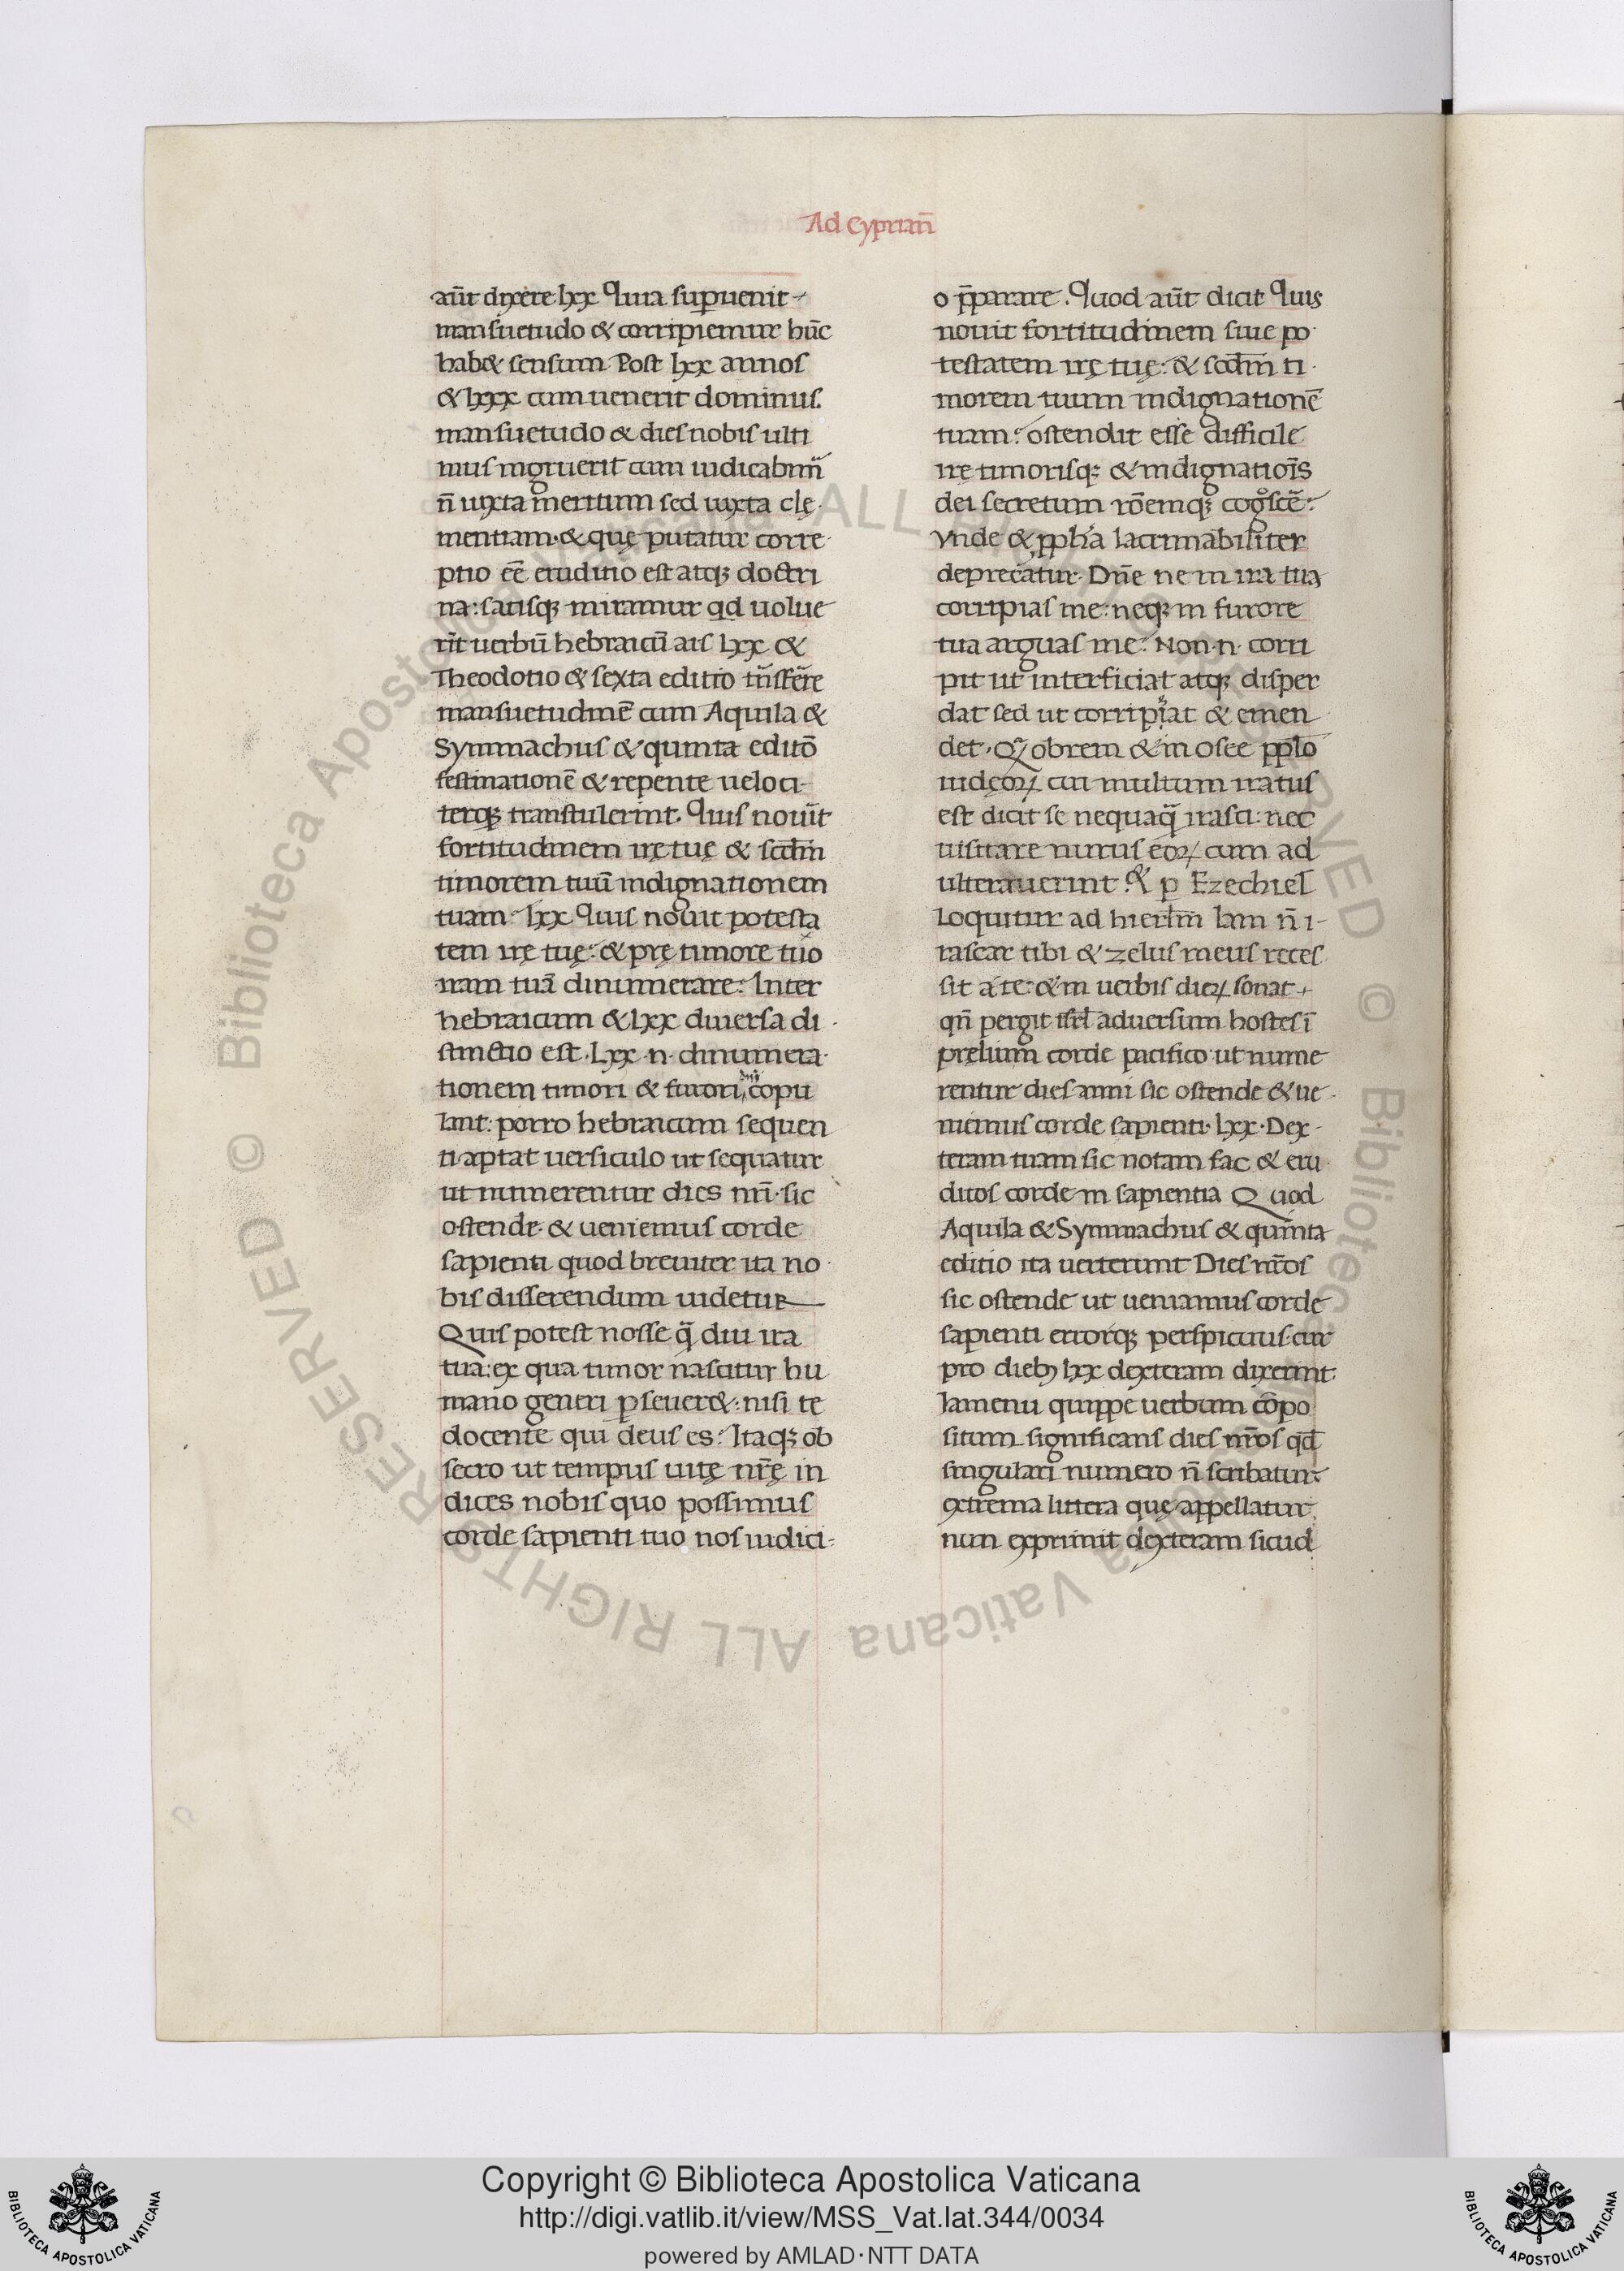 Ad Cyprian̄
aūt dixere lxx Quia supuenit
mansuetudo & corripiemur hūc
hab& sensum Post lxx annos
& lxxx cum uenerit dominus
mansuetudo & dies nobis ulti
mus ingruerit cum iudicabim̃
n̄ iuxta meritum sed iuxta clę
mentiam & quę putatur corre
ptio eē eruditio est atq; doctri
na: satisq; miramur qd uolue
rit uerbū hebraicū ais lxx &
Theodotio & sexta editio
mansuetudinē cum Aquila &
Symmachus & quinta editō
festinationē & repente ueloci
terq; transtulerint. Quis nouit
fortitudinem irę tuę & scdm̄
timorem tuū indignationem
tuam: lxx Quis nouit potesta
tem irę tuę: & prę timore tuo
iram tuā dinumerare: Inter
hebraicum & lxx diuersa di
stinctio est. Lxx .n. dinumera
tionem timori & furori copu
lant: porro hebraicum sequen
ti aptat uersiculo ut sequatur
ut numerentur dies nr̄i. sic
ostende. & ueniemus corde
sapienti quod breuiter ita no
bis disserendum uidetur
Quis potest nosse q̄ diu ira
tua: ex qua timor nascitur hu
mano generi pseuer&: nisi te
docente qui deus es: Itaq; ob
secro ut tempus uitę nr̄ę in
dices nobis quo possimus
corde sapienti tuo nos iudici
o p̄parare. Quod aūt dicit Quis
nouit fortitudinem siue po
testatem irę tuę: & scdm̄ ti
morem tuum indignationē
tuam: ostendit esse difficile
irę timorisq; & indignatiōis
dei secretum rōemq; cog̊scē:
Vnde & pph̄a lacrimabiliter
deprecatur. Dn̄e ne in ira tua
corripias me: neq; in furore
tua arguas me: Non .n. corri
pit ut interficiat atq; disper
dat sed ut corripiat & emen
det. Q obrem & in osee pplo
iudęoꝝ cui multum iratus
est dicit se nequaq̄ irasci: nec
uisitare nurus eoꝝ cum ad
ulterauerint. & p Ezechiel
Loquitur ad hierlm̄ Iam n̄ i
rascar tibi & zelus meus reces
sit a te: & in uerbis dieꝝ sonat
qn̄ pergit isrl̄ aduersum hostes ī
pręlium corde pacifico ut nume
rentur dies anni sic ostende & ue
niemus corde sapienti. lxx. Dex
teram tuam sic notam fac & eru
ditos corde in sapientia Quod
Aquila & Symmachus & quinta
editio ita uerterunt Dies nr̄os
sic ostende ut ueniamus corde
sapienti errorq; perspicuus cur
pro dieb; lxx dexteram dixerint
Iamenu quippe uerbum cōpo
situm significans dies nr̄os qd̄
singulari numero n̄ scribatur
extrema littera quę appellatur
nun exprimit dexteram sicud
Copyright © Biblioteca Apostolica Vaticana
http://digi.vatlib.it/view/MSS_Vat.lat.344/0034
powered by AMLAD·NTT DATA
BIBLIOTECA APOSTOLICA VATICANA
BIBLIOTECA APOSTOLICA VATICANA
© Biblioteca Apostolica Vaticana ALL RIGHTS RESERVED
© Biblioteca Apostolica Vaticana ALL RIGHTS RESERVED